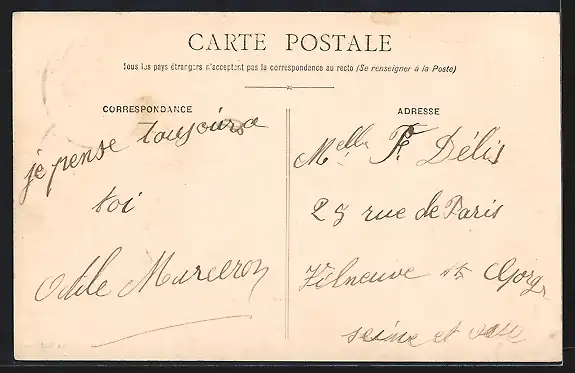 CARTE POSTALE
Tous les pays étrangers n'acceptent pas la correspondance au recto (Se renseigner à la Poste)
CORRESPONDANCE
je pense toujours a
toi
Odile Marceron
ADRESSE
Melle F. Délis
25 rue de Paris
Vilneuve st Gorg
seine et oise